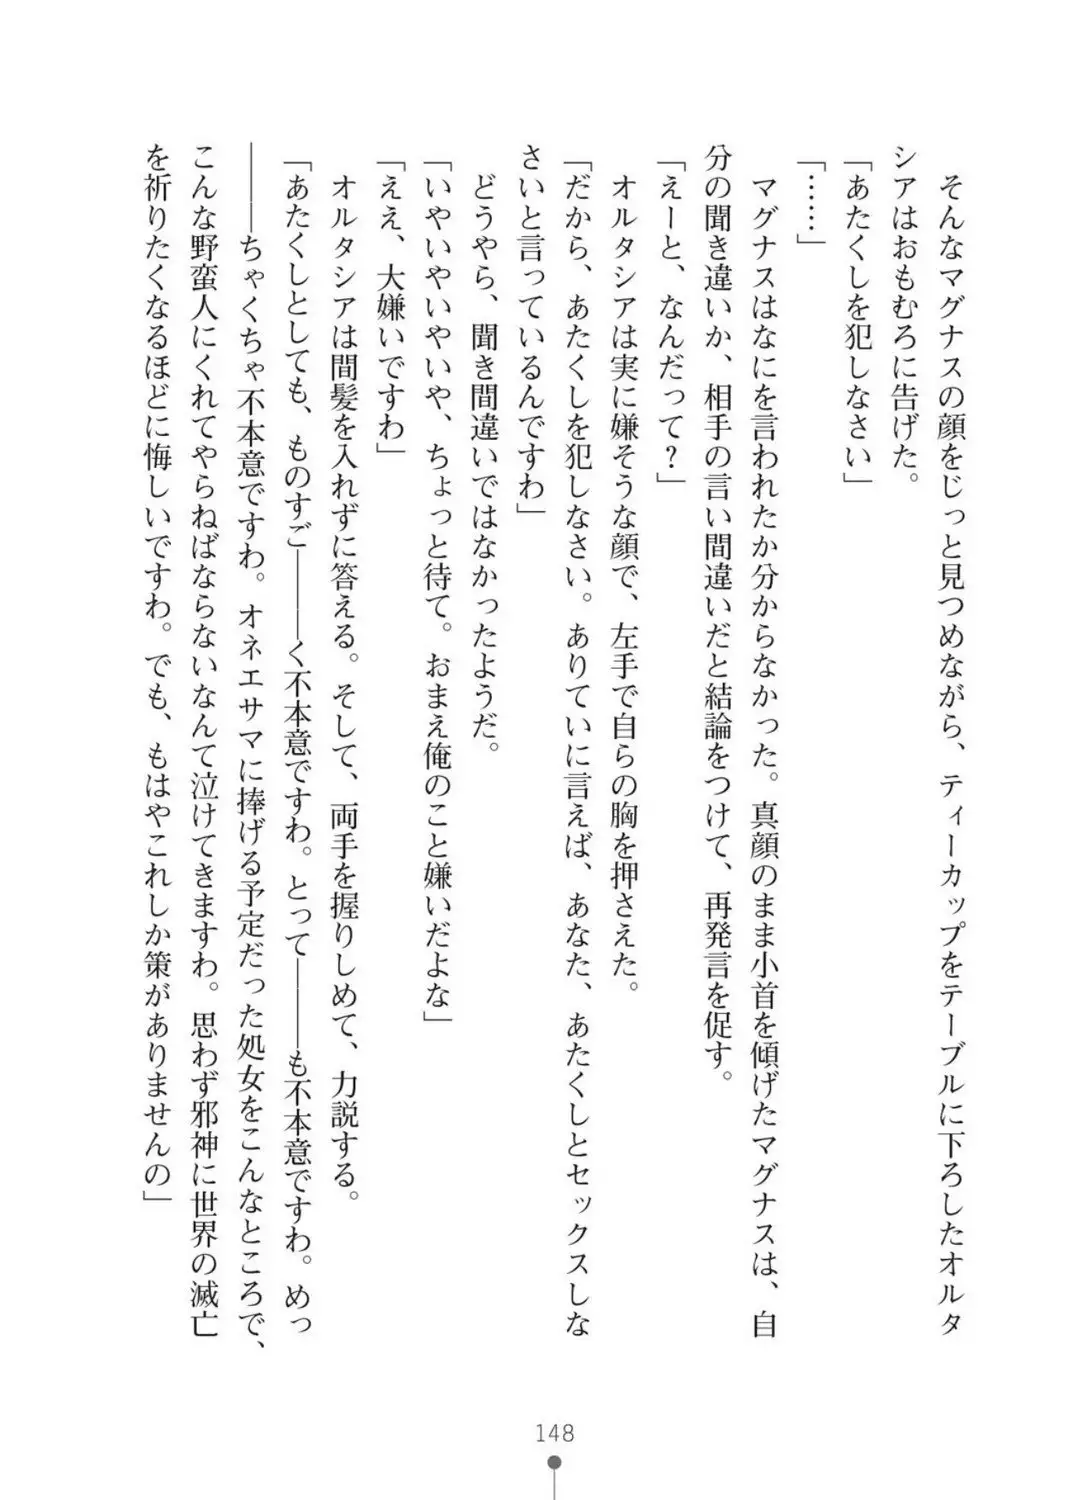 そんなマグナスの顔をじっと見つめながら、ティーカップをテーブルに下ろしたオルタ
シアはおもむろに告げた。
「あたくしを犯しなさい」
「……」
マグナスはなにを言われたか分からなかった。真顔のまま小首を傾げたマグナスは、自
分の聞き違いか、相手の言い間違いだと結論をつけて、再発言を促す。
「えーと、なんだって？」
オルタシアは実に嫌そうな顔で、左手で自らの胸を押さえた。
「だから、あたくしを犯しなさい。ありていに言えば、あなた、あたくしとセックスしな
さいと言っているんですわ」
どうやら、聞き間違いではなかったようだ。
「いやいやいやいや、ちょっと待て。おまえ俺のこと嫌いだよな」
「ええ、大嫌いですわ」
オルタシアは間髪を入れずに答える。そして、両手を握りしめて、力説する。
「あたくしとしても、ものすご―――く不本意ですわ。とって―――も不本意ですわ。めっ
―――ちゃくちゃ不本意ですわ。オネエサマに捧げる予定だった処女をこんなところで、
こんな野蛮人にくれてやらねばならないなんて泣けてきますわ。思わず邪神に世界の滅亡
を祈りたくなるほどに悔しいですわ。でも、もはやこれしか策がありませんの」
148